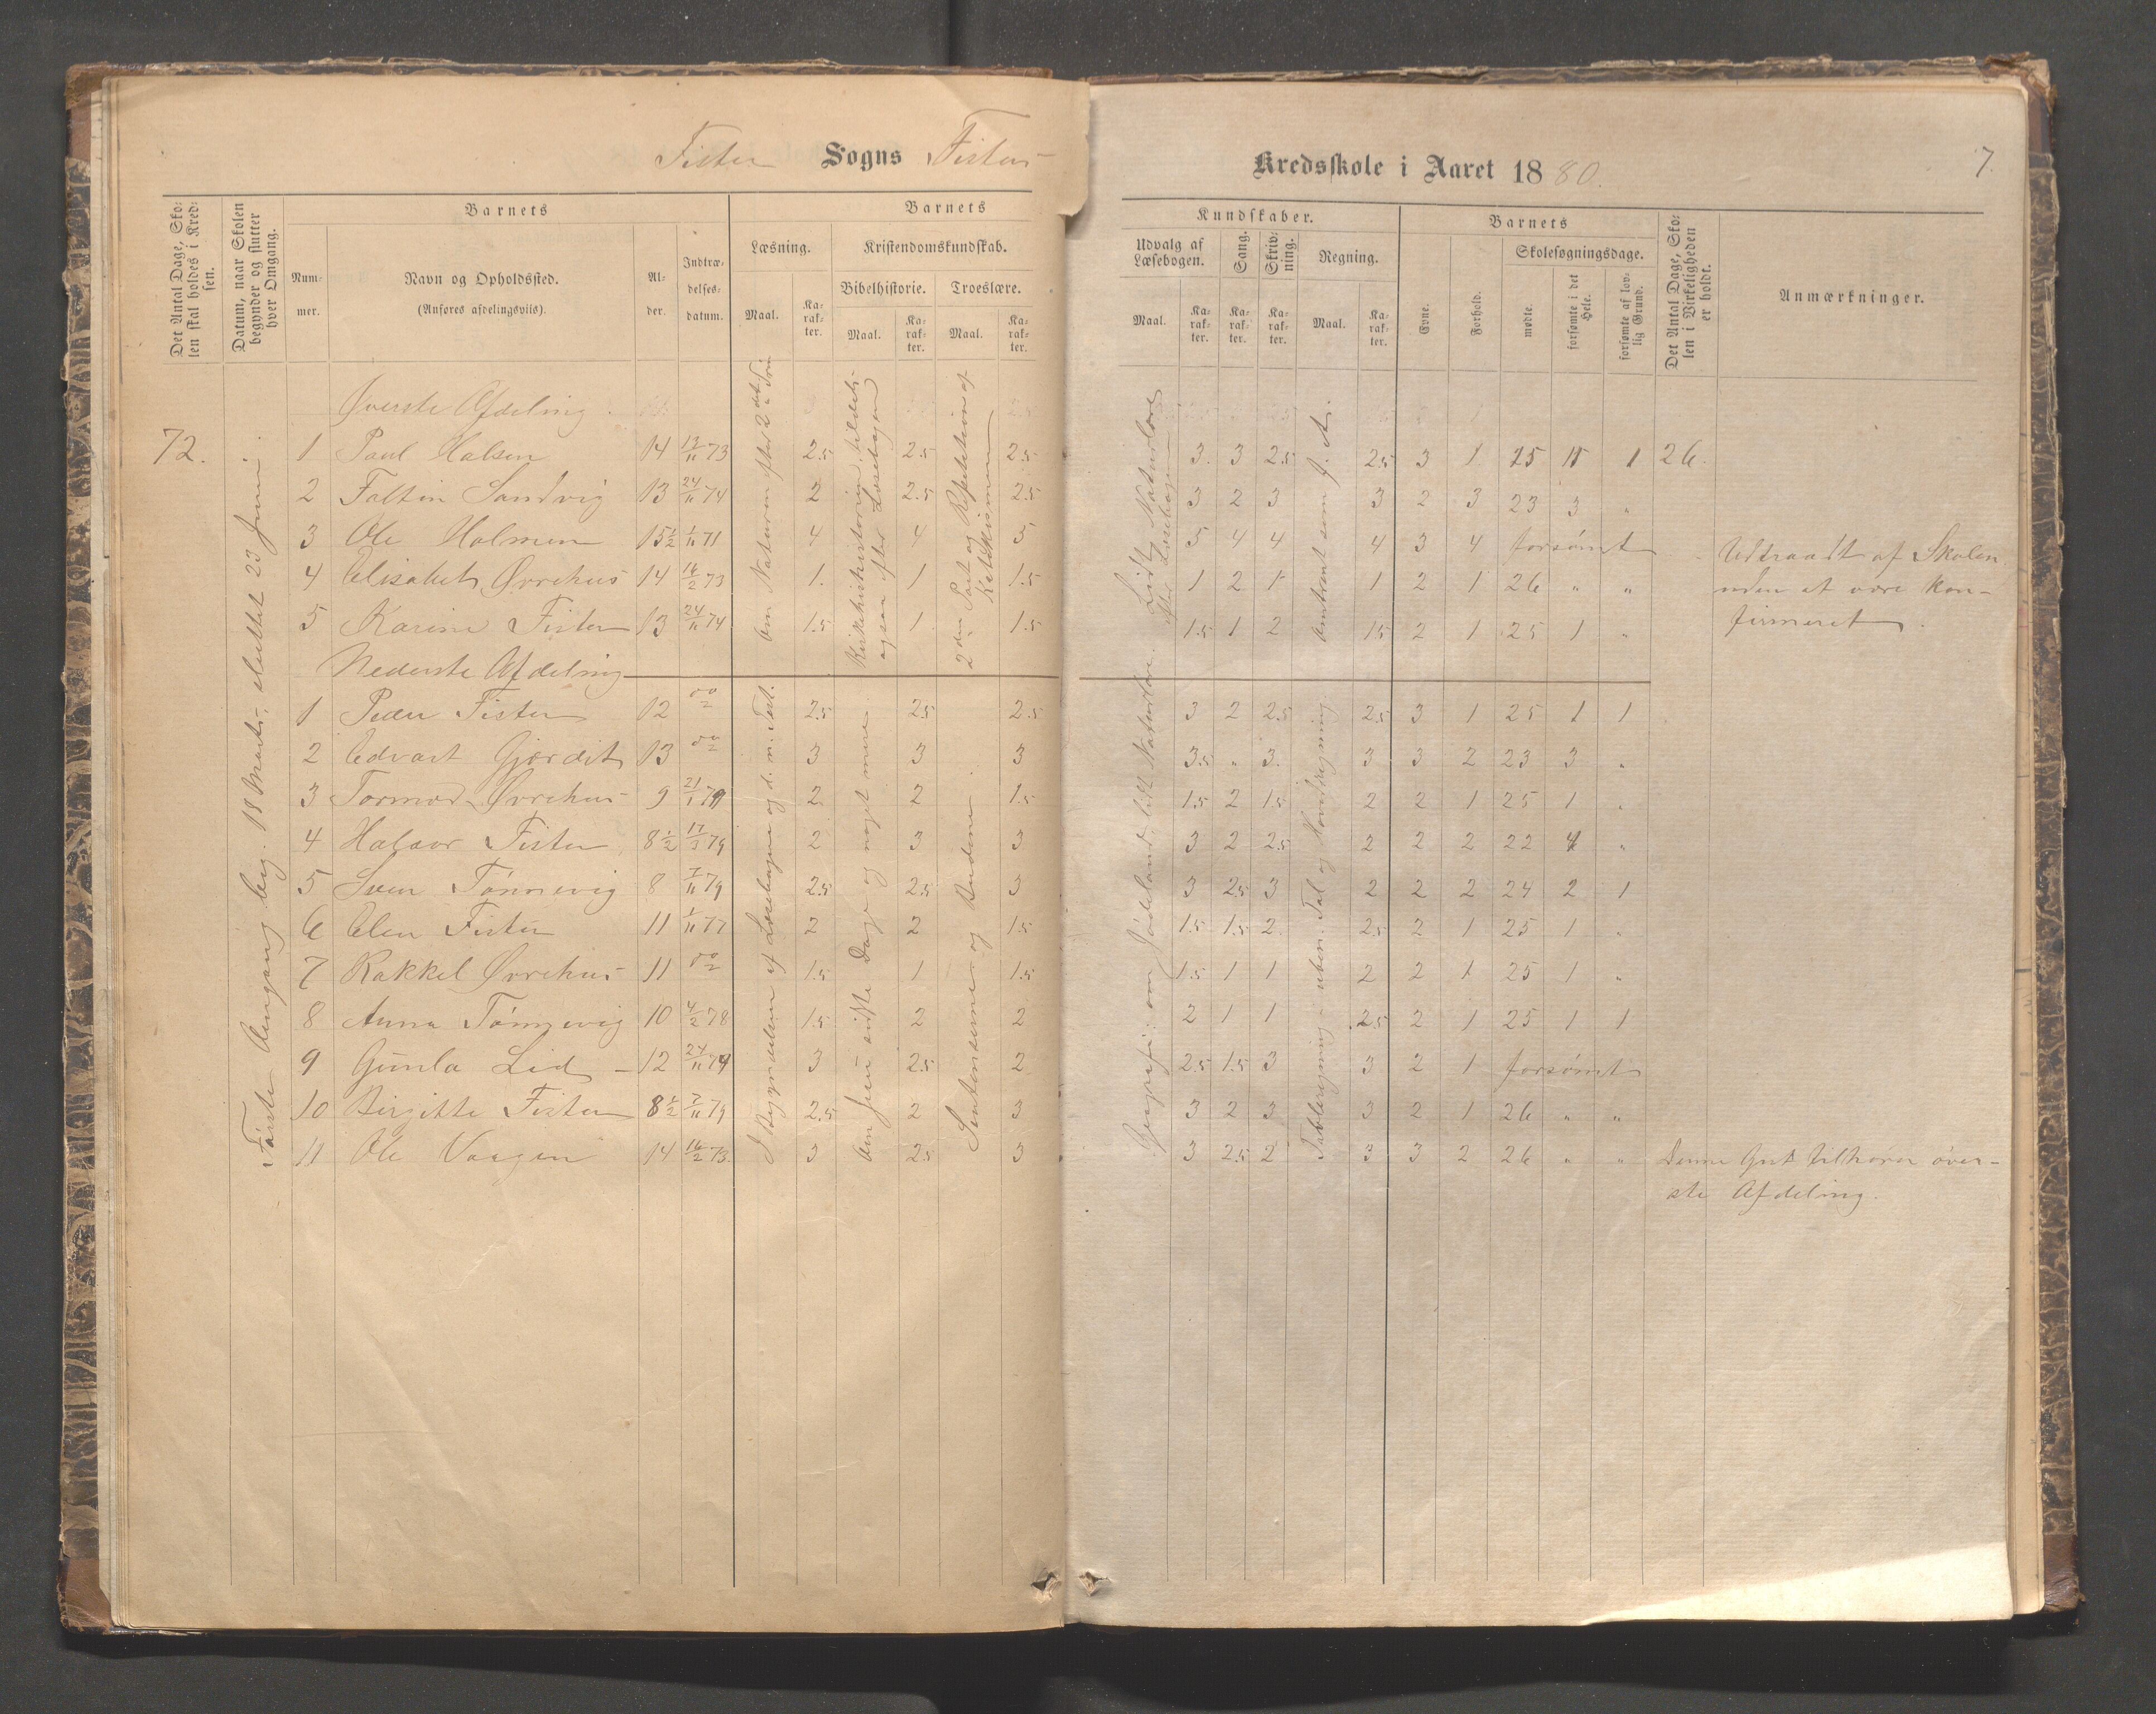 Fister Sogns Fisters
Kredsskole i Aaret 1880.
7.
Det Antal Dage, Skolen skal holdes i Kredsen.
Datum, naar Skolen begynder og slutter hver Omgang.
Barnets
Nummer.
Navn og Opholdssted.
(Anføres afdelingsviis).
Alder.
Indtrædelsesdatum.
Barnets
Læsning.
Maal.
Karakter.
Kristendomskundskab.
Bibelhistorie.
Maal.
Karakter.
Troeslære.
Maal.
Karakter.
Kundskaber.
Udvalg af Læsebogen.
Maal.
Karakter.
Sang.
Karakter.
Skrivning.
Karakter.
Regning.
Maal.
Karakter.
Barnets
Evne.
Forhold.
Skolesøgningsdage.
mødte.
forsømte i det Hele.
forsømte af lovlig Grund.
Det Antal Dage, Skolen i Virkeligheden er holdt.
Anmærkninger.
72.
Første Omgang beg. 18 Marts, sluttet 23 Juni.
Øverste Afdeling.
Om Naturen efter 2det Trin
Kirkehistorien tildels ogsaa efter Læsebogen
2den Part og Repetition af Katekismen
Lidt Naturlære efter Læsebogen
omtrent som f. A.
1 Paul Halsen 14 13/11 73 2.5 2.5 2.5 3. 3 2.5 2.5 3 1. 15 11 1 26.
2 Faltin Sandvig 13 24/11 74 2 2.5 2.5 3 2 3 3 2 3 23 3 "
3 Ole Holmen 15½ 1/11 71 4 4 3 5 4 4 4 3 4 forsømt
Udtraadt af Skolen
uden at være kon-
firmeret.
4 Elisabet Ørrehus 14 16/2 73 1. 1 1.5 1 2 1 1 2 1 26 " "
5 Karine Fister 13 24/11 74 1.5 1 1.5 1.5 1 2 1.5 2 1 25 1 "
Nederste Afdeling
I Begyndelsen af Læsebogen og d. n. Test.
Om Jesu sidste Dage og noget mere.
Sentenserne og Budene.
Geografi: om Jødeland, lidt Naturlære.
Tavleregning - uben. Tal og Hovedregning.
1 Peder Fister 12 2.5 2.5 2.5 3 2 2.5 2.5 3 1 25 1 1
2 Edvart Gjordet 13 3 3 3 3.5 " 3. 3 3 2 23 3 "
3 Tormod Ørrehus 9 21/1 79 2 2 1.5 1.5 2 1.5 2 2 1 25 1 "
4 Halvor Fister 8½ 17/3 79 2 3 3 3 2 2.5 2 2 2 22 4 "
5 Sven Tønnevig 8 7/11 79 2.5 2.5 3 3 2.5 3 2 2 2 24 2 1
6 Elen Fister 11 1/11 77 2 2 1.5 1.5 1.5 2. 2.5 2 1 25 1 "
7 Rakkel Ørrehus 11 1.5 1 1.5 1.5 1 1 2 2 1 25 1 "
8 Anna Tønnevig 10 4/2 78 1.5 2 2 2 1 1 2.5 2 1 25 1 1
9 Gunla Lid 12 24/11 74 3 2.5 2 2.5 1.5 3 3 2 1 forsømt
10 Birgitte Fister 8½ 7/11 79 2.5 2 3 3 2 3 3 2 1 26 " "
11 Ole Vaagen 14 16/2 73. 3 2.5 3 3 2.5 2 3 3 2 26 " "
Denne Gut tilhører øver-
ste Afdeling.